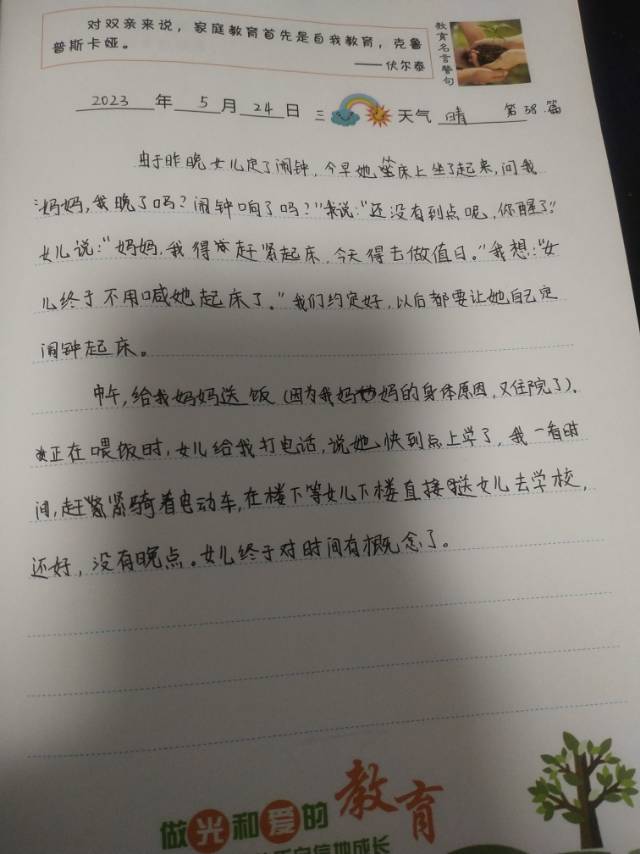 对双亲来说，家庭教育首先是自我教育，克鲁
普斯卡娅。
——伏尔泰
教育名言警句
2023 年 5 月 24 日 三 天气 晴 第38篇
由于昨晚女儿定了闹钟，今早她坐床上坐了起来，问我
：“妈妈，我晚了吗？闹钟响了吗？”我说：“还没有到点呢，你醒了？”
女儿说：“妈妈，我得赶紧起床，今天得去做值日。”我想：“女
儿终于不用喊她起床了。”我们约定好，以后都要让她自己定
闹钟起床。
中午，给我妈妈送饭（因为我妈妈的身体原因，又住院了）。
正在喂饭时，女儿给我打电话，说她快到点上学了，我一看时
间，赶紧紧骑着电动车，在楼下等女儿下楼直接送女儿去学校，
还好，没有晚点。女儿终于对时间有概念了。
做光和爱的教育
自信地成长